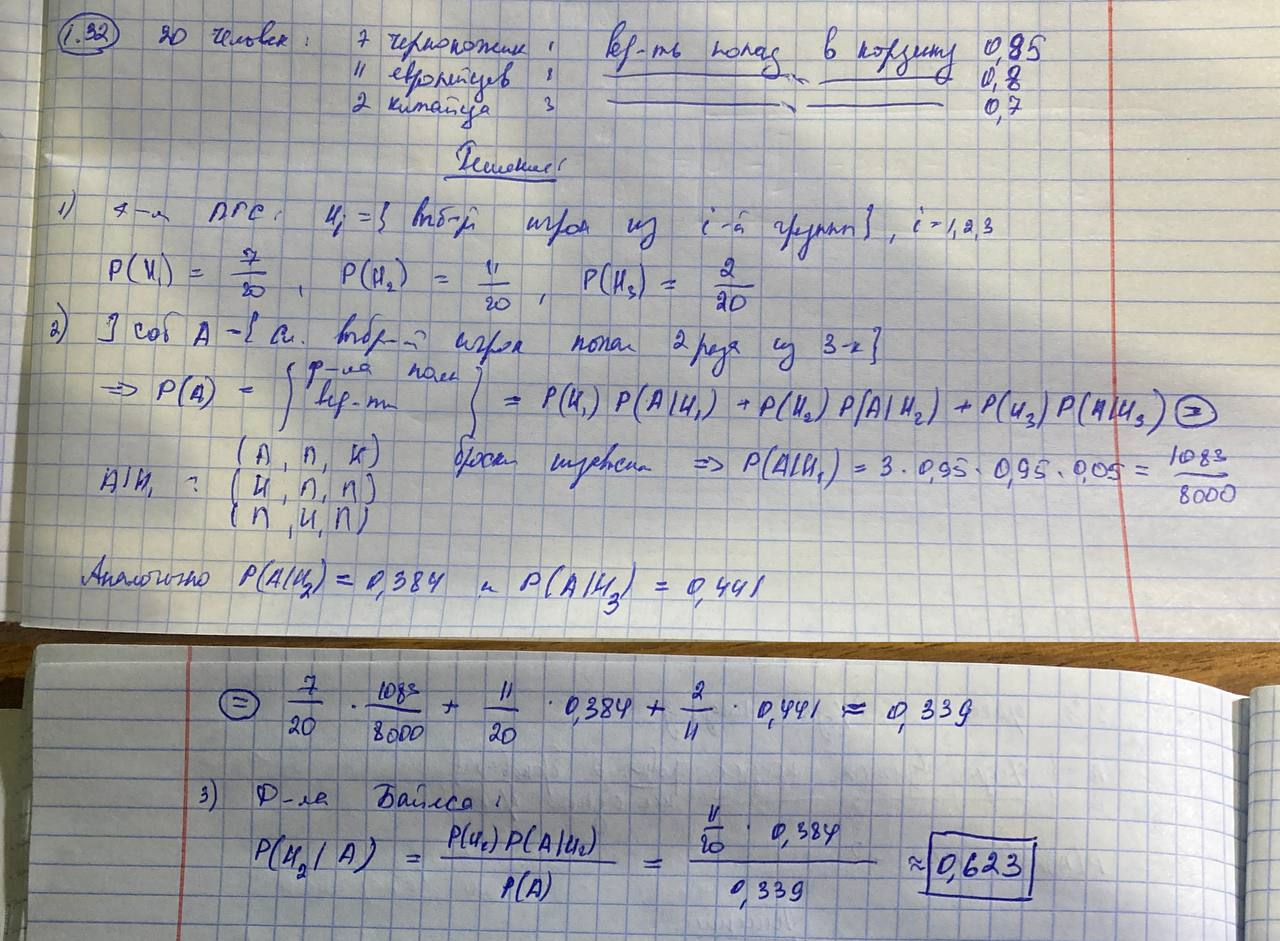 1.32 20 человек: 7 чернокожих : вер-ть попад. в корзину 0,95
11 европейцев : 0,8
2 китайца : 0,7
Решение:
1) ППС: Hi = { выб-й игрок из i-й группы }, i = 1,2,3
P(H₁) = 7/20 , P(H₂) = 11/20 , P(H₃) = 2/20
2) ] соб A - { сл. выбр-й игрок попал 2 раза из 3-х }
=> P(A) = { ф-ла полн вер-ти } = P(H₁) P(A|H₁) + P(H₂) P(A|H₂) + P(H₃) P(A|H₃) ⊜
A|H₁ : (П, П, Н) броски => P(A|H₁) = 3 · 0,95 · 0,95 · 0,05 = 1083/8000
(Н, П, П)
(П, Н, П)
Аналогично P(A|H₂) = 0,384 и P(A|H₃) = 0,441
⊜ 7/20 · 1083/8000 + 11/20 · 0,384 + 2/11 · 0,441 ≈ 0,339
3) Ф-ла Байеса :
P(H₂|A) = P(H₂) P(A|H₂)/P(A) = 11/20 · 0,384/0,339 ≈ 0,623